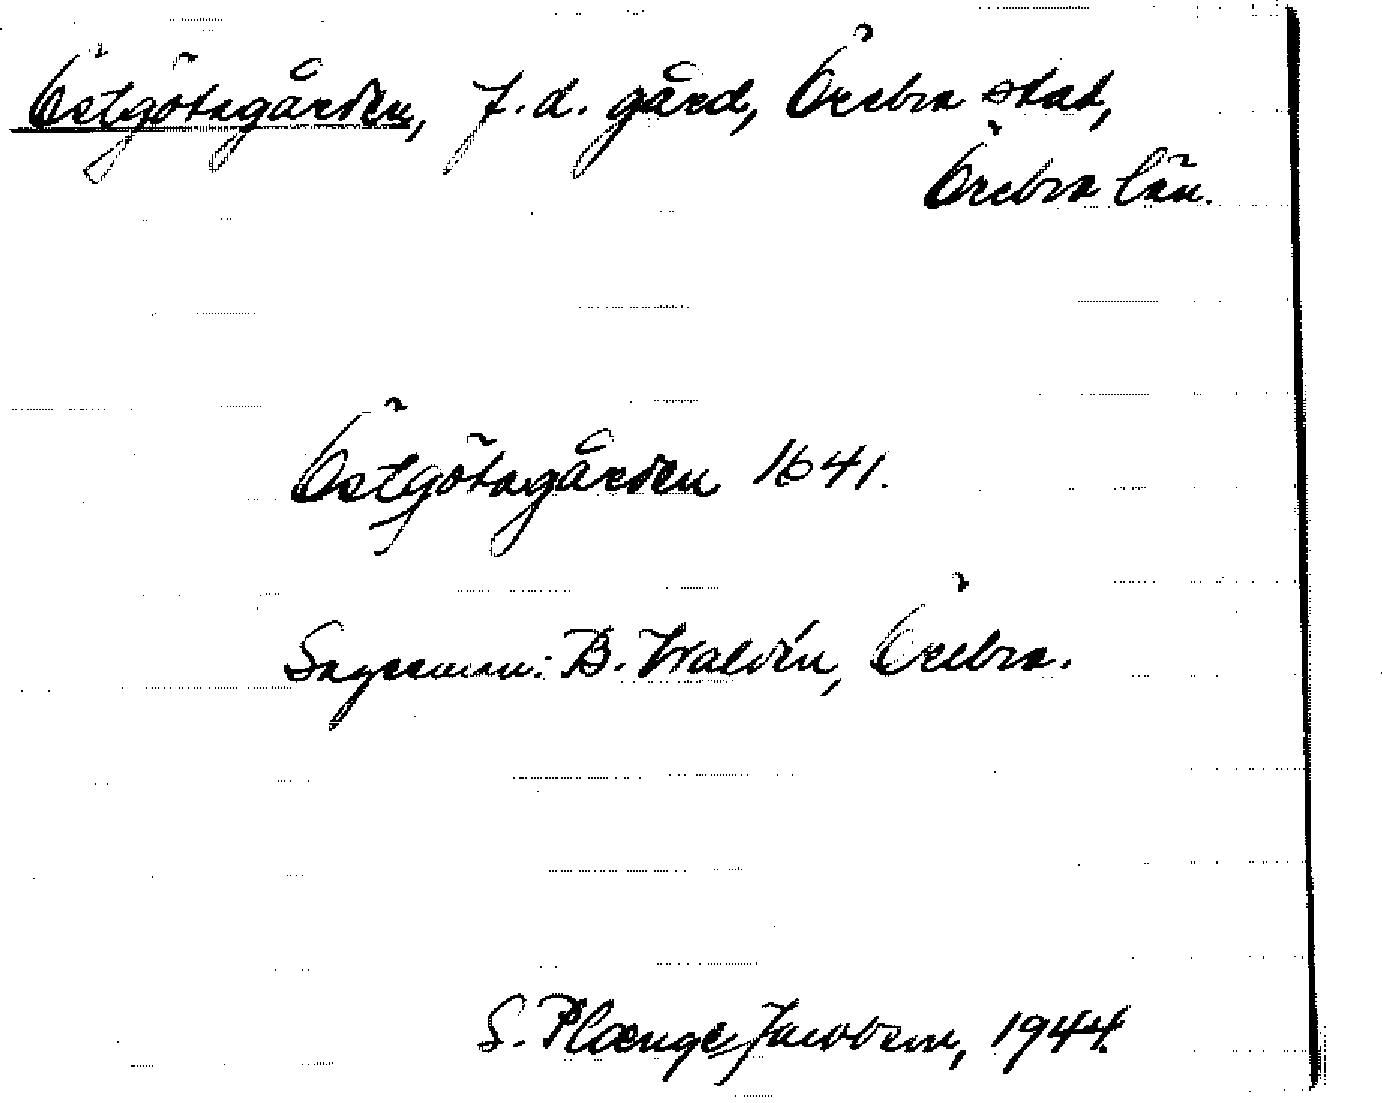 Östgötagården, f.d. gård, Örebro stad,
Örebro län.
Östgötagården 1641.
Sagesman: B. Waldén, Örebro.
S. Plænge Jacobson, 1944.